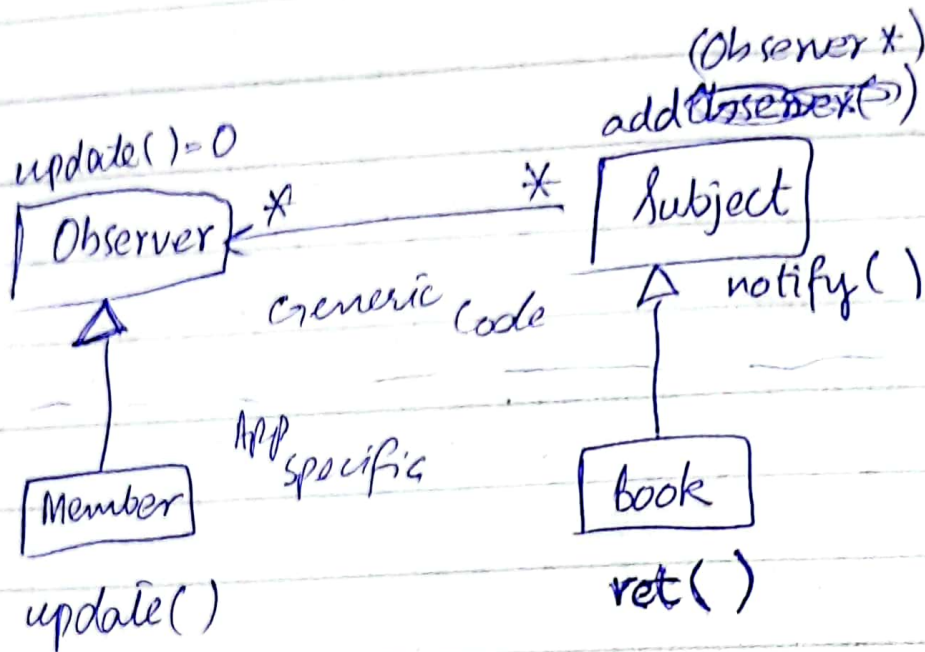 (Observer *)
add
update()=0
* *
Observer
Subject
notify()
Generic Code
App
specific
Member
Book
update()
ret()